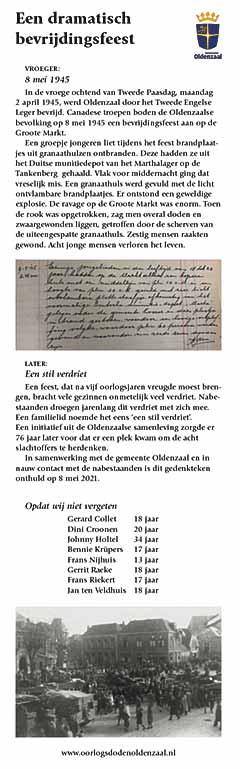 Een dramatisch
bevrijdingsfeest
Gemeente
Oldenzaal
VROEGER:
8 mei 1945
In de vroege ochtend van Tweede Paasdag, maandag
2 april 1945, werd Oldenzaal door het Tweede Engelse
Leger bevrijd. Canadese troepen boden de Oldenzaalse
bevolking op 8 mei 1945 een bevrijdingsfeest aan op de
Groote Markt.
Een groepje jongeren liet tijdens het feest brandplaat-
jes uit granaathulzen ontbranden. Deze hadden ze uit
het Duitse munitiedepot van het Marthalager op de
Tankenberg gehaald. Vlak voor middernacht ging dat
vreselijk mis. Een granaathuls werd gevuld met de licht
ontvlambare brandplaatjes. Er ontstond een geweldige
explosie. De ravage op de Groote Markt was enorm. Toen
de rook was opgetrokken, zag men overal doden en
zwaargewonden liggen, getroffen door de scherven van
de uiteengespatte granaathuls. Zestig mensen raakten
gewond. Acht jonge mensen verloren het leven.
LATER:
Een stil verdriet
Een feest, dat na vijf oorlogsjaren vreugde moest bren-
gen, bracht vele gezinnen onmetelijk veel verdriet. Nabe-
staanden droegen jarenlang dit verdriet met zich mee.
Een familielid noemde het eens 'een stil verdriet'.
Een initiatief uit de Oldenzaalse samenleving zorgde er
76 jaar later voor dat er een plek kwam om de acht
slachtoffers te herdenken.
In samenwerking met de gemeente Oldenzaal en in
nauw contact met de nabestaanden is dit gedenkteken
onthuld op 8 mei 2021.
Opdat wij niet vergeten
Gerard Collet 18 jaar
Dini Croonen 20 jaar
Johnny Holtel 34 jaar
Bennie Krüpers 17 jaar
Frans Nijhuis 13 jaar
Gerrit Raeke 18 jaar
Frans Riekert 17 jaar
Jan ten Veldhuis 18 jaar
www.oorlogsdodenoldenzaal.nl